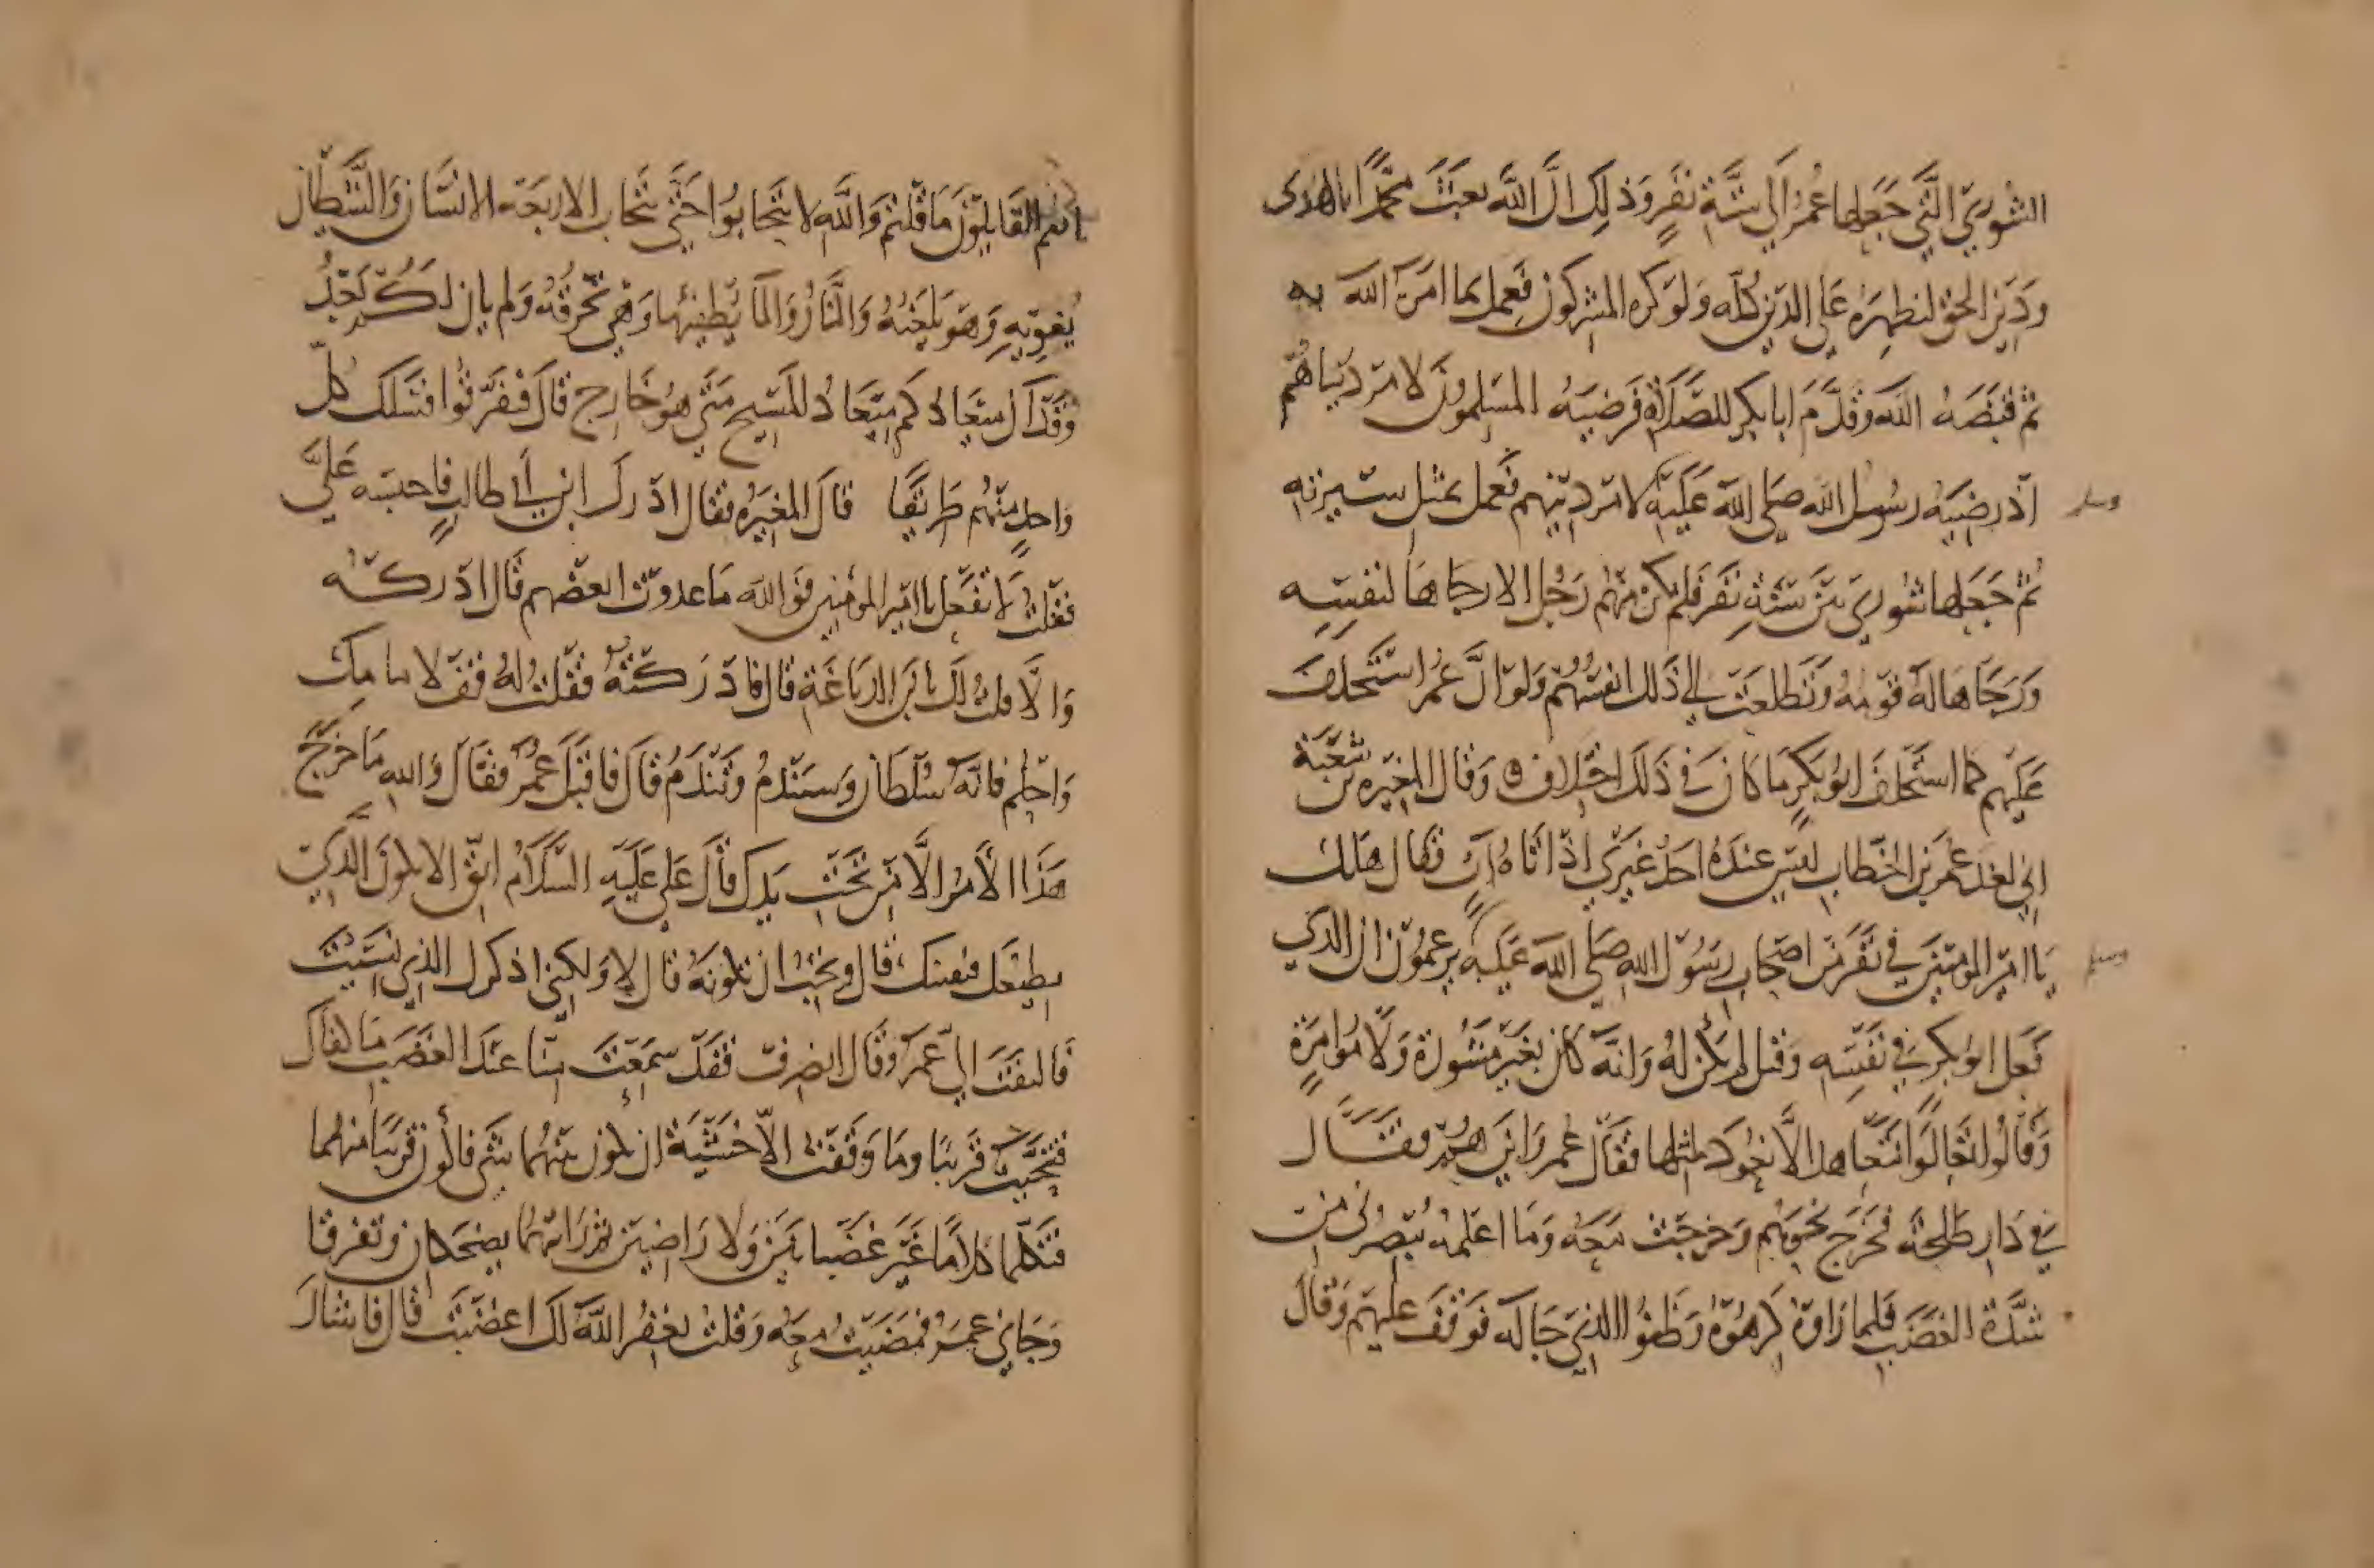 الشورى التي جعلها عمر الى ستة نفر وذلك ان الله بعث محمدا بالهدى
ودين الحق ليظهره على الدين كله ولو كره المشركون فعمل بما امره الله به
ثم قبضه الله وقدم ابا بكر للصلاة فرضيه المسلمون لامر دنياهم
اذ رضيه رسول الله صلى الله عليه وسلم لامر دينهم فعمل بمثل سيرته
ثم جعلها شورى بين ستة نفر فلم يكن منهم رجل الا رجاها لنفسه
ورجاها له قومه وتطلعت الى ذلك انفسهم ولو ان عمر استخلف
عليهم كما استخلف ابو بكر ما كان في ذلك اختلاف وقال المغيره بن شعبة
اني لعند عمر بن الخطاب ليس عنده احد غيري اذ اتاه ات فقال هل لك
يا امير المومنين في نفر من اصحاب رسول الله صلى الله عليه وسلم يزعمون ان الذي
فعل ابو بكر في نفسه وقيل لم يكن له وانه كان بغير مشورة ولا موامرة
وقالوا تعالوا نتعاهد الا نعود مثلها فقال عمر واين هم فقال
في دار طلحة فخرج نحوهم وخرجت معه وما اعلمه يبصرني من
شدة الغضب فلما راوه كرهوه وظنوا الذي جا له فوقف عليهم وقال
انتم القايلون ما قلتم والله لا تتحابوا حتى يتحاب الاربعة الانسان والشيطان
يغويه وهو يلعنه والنار والما يطفيها وهي تحرقه ولم يان لكم بعد
وقد ان ميعادكم ميعاد المسيح متى هو خارج قال فتفرقوا فسلك كل
واحد منهم طريقا قال المغيره فقال ادرك ابن ابي طالب فاحبسه علي
فقلت لا تفعل يا امير المومنين فوالله ما عدوت بعضهم قال ادركه
والا قلت لك يا بن الدباغة قال فادركته فقلت له قف لامامك
واحلم فانه سلطان وسيندم وتندم قال فاقبل عمر فقال والله ما خرج
هذا الامر الا من تحت يدك قال علي عليه السلام اتق الا تكون الذي
نطيعك فنفتنك قال وتحب ان تكونه قال لا ولكني اذكرك الذي نسيت
فالتفت الي عمر وقال انصرف فقد سمعت منا عند الغضب ما كفاك
فتنحيت قريبا وما وقفت الا خشية ان يكون بينهما شي فاكون قريبا منهما
فتكلما كلاما غير غضبانين ولا راضيين ثم رايتهما يضحكان وتفرقا
وجاني عمر فمضيت معه وقلت يغفر الله لك اغضبت قال فاشار